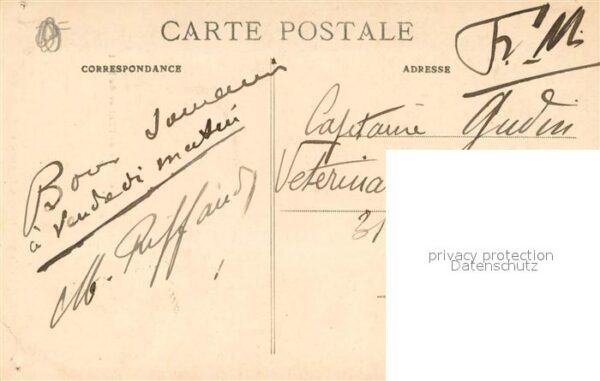 CARTE POSTALE
Fr. M.
CORRESPONDANCE
ADRESSE
Bon
à vendredi matin
M. Riffaud
Capitaine Gudin
Vétérina
31
privacy protection
Datenschutz